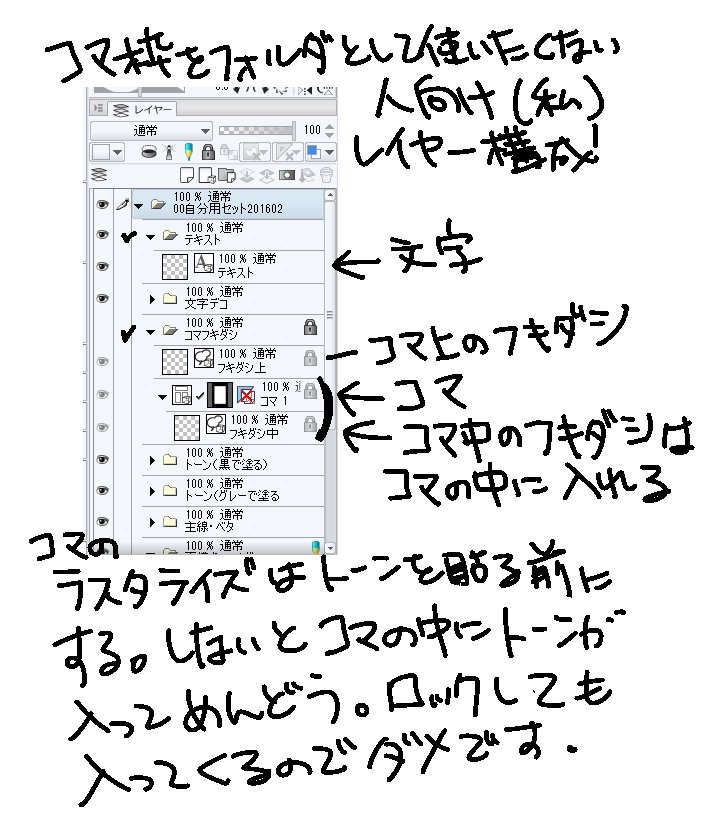 コマ枠をフォルダとして使いたくない
人向け(私)
レイヤー構成!
レイヤー
通常
100
100 % 通常
00自分用セット201602
100 % 通常
テキスト
100 % 通常
テキスト
←文字
100 % 通常
文字デコ
100 % 通常
コマフキダシ
100 % 通常
フキダシ上
ーコマ上のフキダシ
100 % 通
コマ 1
←コマ
100 % 通常
フキダシ中
←コマ中のフキダシは
コマの中に入れる
100 % 通常
トーン(黒で塗る)
100 % 通常
トーン(グレーで塗る
100 % 通常
主線・ベタ
100 % 通常
コマの
ラスタライズはトーンを貼る前に
する。しないとコマの中にトーンが
入ってめんどう。ロックしても
入ってくるのでダメです.